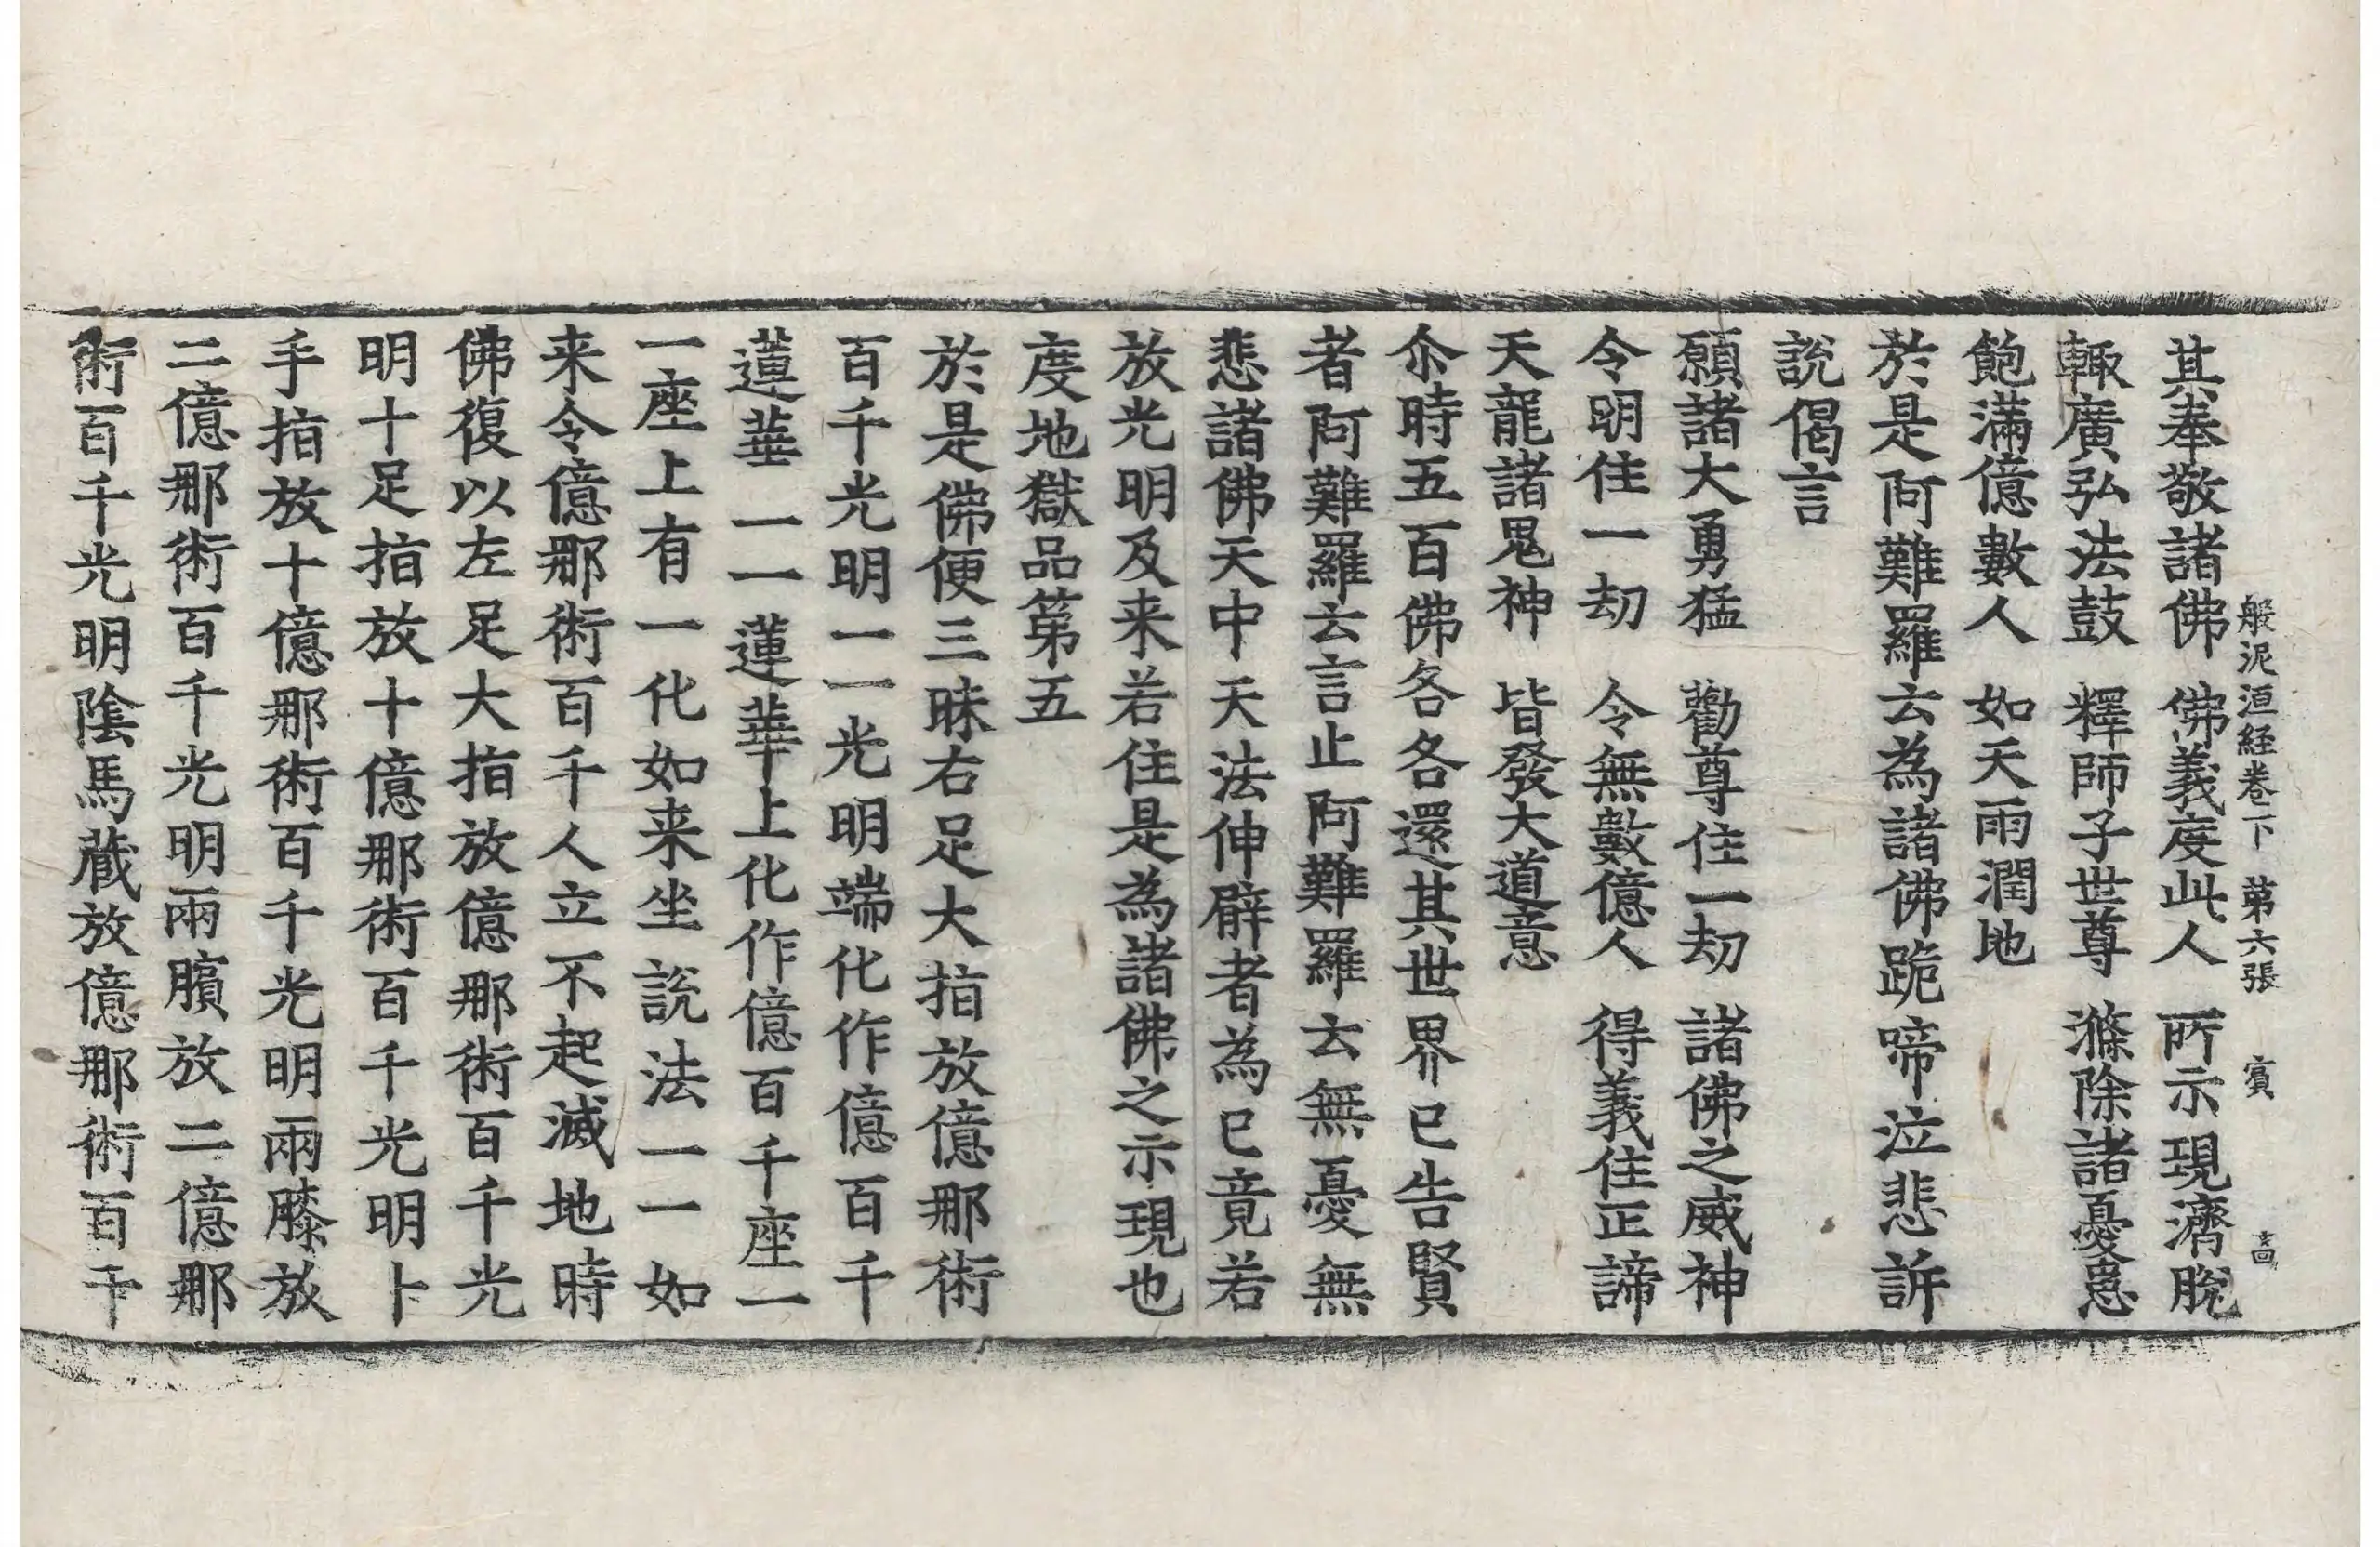 般泥洹経卷下 第六張 賓
其奉敬諸佛 佛義度此人 所示現濟脫
輙廣弘法鼓 釋師子世尊 滌除諸憂患
飽滿億數人 如天雨潤地
於是阿難羅云為諸佛跪啼泣悲訴
說偈言
願諸大勇猛 勸尊住一劫 諸佛之威神
令明住一劫 令無數億人 得義住正諦
天龍諸鬼神 皆發大道意
尒時五百佛各各還其世界已告賢
者阿難羅云言止阿難羅云無憂無
悲諸佛天中天法伸臂者為已竟若
放光明及来若住是為諸佛之示現也
度地獄品第五
於是佛便三昧右足大指放億那術
百千光明一一光明端化作億百千
蓮華一一蓮華上化作億百千座一
一座上有一化如来坐說法一一如
来令億那術百千人立不起滅地時
佛復以左足大指放億那術百千光
明十足指放十億那術百千光明十
手指放十億那術百千光明兩膝放
二億那術百千光明兩髕放二億那
術百千光明陰馬藏放億那術百千